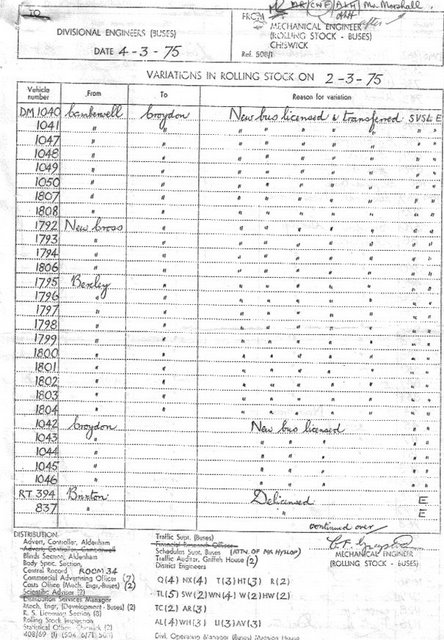 TO
DIVISIONAL ENGINEERS (BUSES)
DATE 4-3-75
FROM Mr. Marshall.
MECHANICAL ENGINEER
(ROLLING STOCK - BUSES)
CHISWICK
Ref. 508/1
VARIATIONS IN ROLLING STOCK ON 2-3-75
Vehicle number From To Reason for variation
DM.1040 Camberwell Croydon New bus licensed & transferred SVSL E
1041 " " " " " " " " "
1047 " " " " " " " " "
1048 " " " " " " " " "
1049 " " " " " " " " "
1050 " " " " " " " " "
1807 " " " " " " " " "
1808 " " " " " " " " "
1792 New Cross " " " " " " " "
1793 " " " " " " " " "
1794 " " " " " " " " "
1806 " " " " " " " " "
1795 Bexley " " " " " " " "
1796 " " " " " " " " "
1797 " " " " " " " " "
1798 " " " " " " " " "
1799 " " " " " " " " "
1800 " " " " " " " " "
1801 " " " " " " " " "
1802 " " " " " " " " "
1803 " " " " " " " " "
1804 " " " " " " " " "
1042 Croydon New bus licensed " "
1043 " " " " " "
1044 " " " " " "
1045 " " " " " "
1046 " " " " " "
RT.394 Brixton Delicensed E
837 " " E
continued over
MECHANICAL ENGINEER
(ROLLING STOCK - BUSES)
DISTRIBUTION:
Advert, Controller, Aldenham
Blinds Section, Aldenham
Body Spec. Section,
Central Record ROOM 34
Commercial Advertising Officer (7)
Costs Office (Mech. Engr. Buses) (2)
Scientific Adviser (2)
Distribution Services Manager
Mech. Engr. (Development - Buses) (2)
R. S. Licensing Section (3)
Rolling Stock Inspection
Statistical Office, Chiswick (2)
Traffic Supt. (Buses)
Schedules Supt. Buses (ATTN. OF MR HYSLOP)
Traffic Auditor, Griffith House (2)
District Engineers
Q(4) NX(4) T(3) HT(3) R(2)
TL(5) SW(2) WN(4) W(2) HW(2)
TC(2) AR(3)
AL(4) WH(3) U(3) AV(3)
Civil Operating Manager (Buses) Mansion House